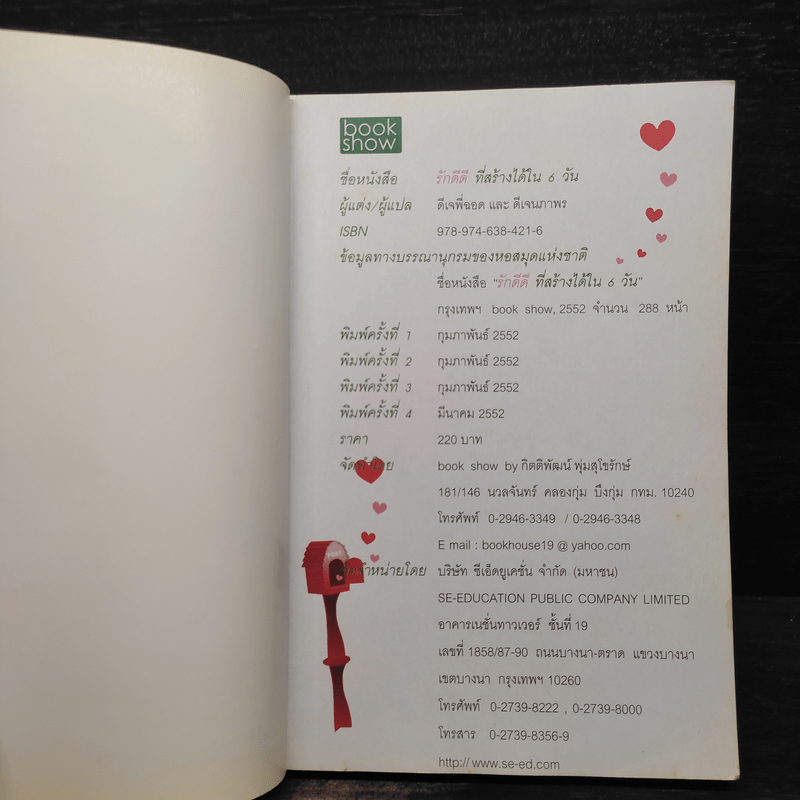 book
show
ชื่อหนังสือ รักดีดี ที่สร้างได้ใน 6 วัน
ผู้แต่ง/ผู้แปล ดีเจพี่ฉอด และ ดีเจนภาพร
ISBN 978-974-638-421-6
ข้อมูลทางบรรณานุกรมของหอสมุดแห่งชาติ
ชื่อหนังสือ "รักดีดี ที่สร้างได้ใน 6 วัน"
กรุงเทพฯ book show, 2552 จำนวน 288 หน้า
พิมพ์ครั้งที่ 1 กุมภาพันธ์ 2552
พิมพ์ครั้งที่ 2 กุมภาพันธ์ 2552
พิมพ์ครั้งที่ 3 กุมภาพันธ์ 2552
พิมพ์ครั้งที่ 4 มีนาคม 2552
ราคา 220 บาท
จัดทำโดย book show by กิตติพัฒน์ พุ่มสุโขรักษ์
181/146 นวลจันทร์ คลองกุ่ม บึงกุ่ม กทม. 10240
โทรศัพท์ 0-2946-3349 / 0-2946-3348
E mail : bookhouse19 @ yahoo.com
จัดจำหน่ายโดย บริษัท ซีเอ็ดยูเคชั่น จำกัด (มหาชน)
SE-EDUCATION PUBLIC COMPANY LIMITED
อาคารเนชั่นทาวเวอร์ ชั้นที่ 19
เลขที่ 1858/87-90 ถนนบางนา-ตราด แขวงบางนา
เขตบางนา กรุงเทพฯ 10260
โทรศัพท์ 0-2739-8222 , 0-2739-8000
โทรสาร 0-2739-8356-9
http:// www.se-ed.com